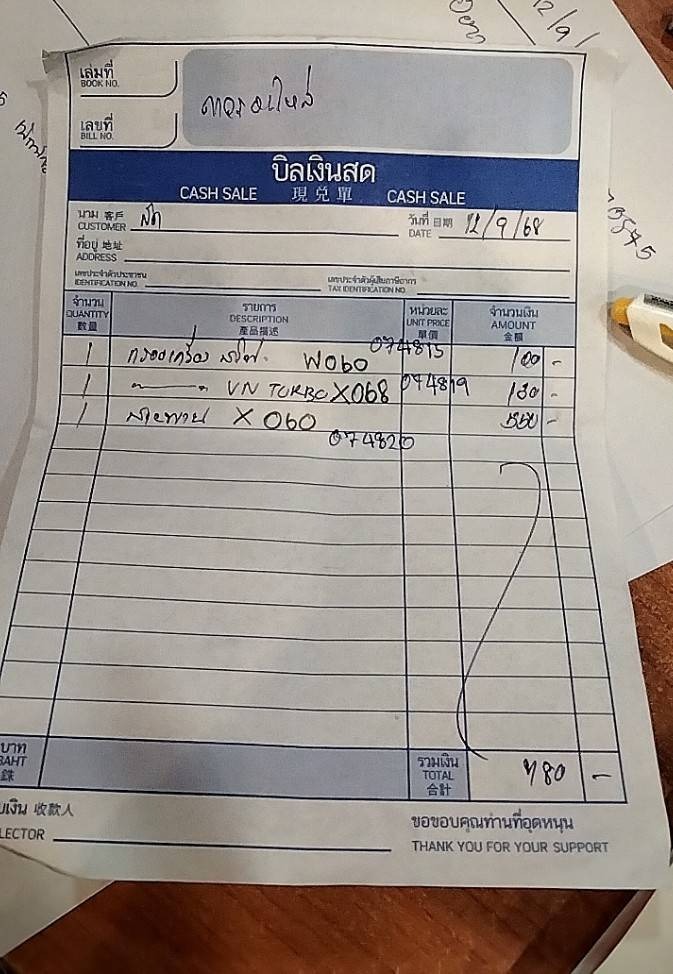 เล่มที่
BOOK NO.
เลขที่
BILL NO.
บิลเงินสด
CASH SALE 現兌單 CASH SALE
นาม 客戶
CUSTOMER
วันที่ 日期 12/9/68
DATE
ที่อยู่ 地址
ADDRESS
เลขประจำตัวประชาชน
IDENTIFICATION NO.
เลขประจำตัวผู้เสียภาษีอากร
TAX IDENTIFICATION NO.
จำนวน
QUANTITY
數量
รายการ
DESCRIPTION
產品描述
หน่วยละ
UNIT PRICE
單價
จำนวนเงิน
AMOUNT
金額
1 กรองเครื่อง W060 074815 100 -
1 VN TURBO X068 074819 130 -
1 สายพาน X060 550 -
074820
บาท
BAHT
銖
รวมเงิน
TOTAL
合計
780 -
บเงิน 收款人
LECTOR
ขอขอบคุณท่านที่อุดหนุน
THANK YOU FOR YOUR SUPPORT
12/9/